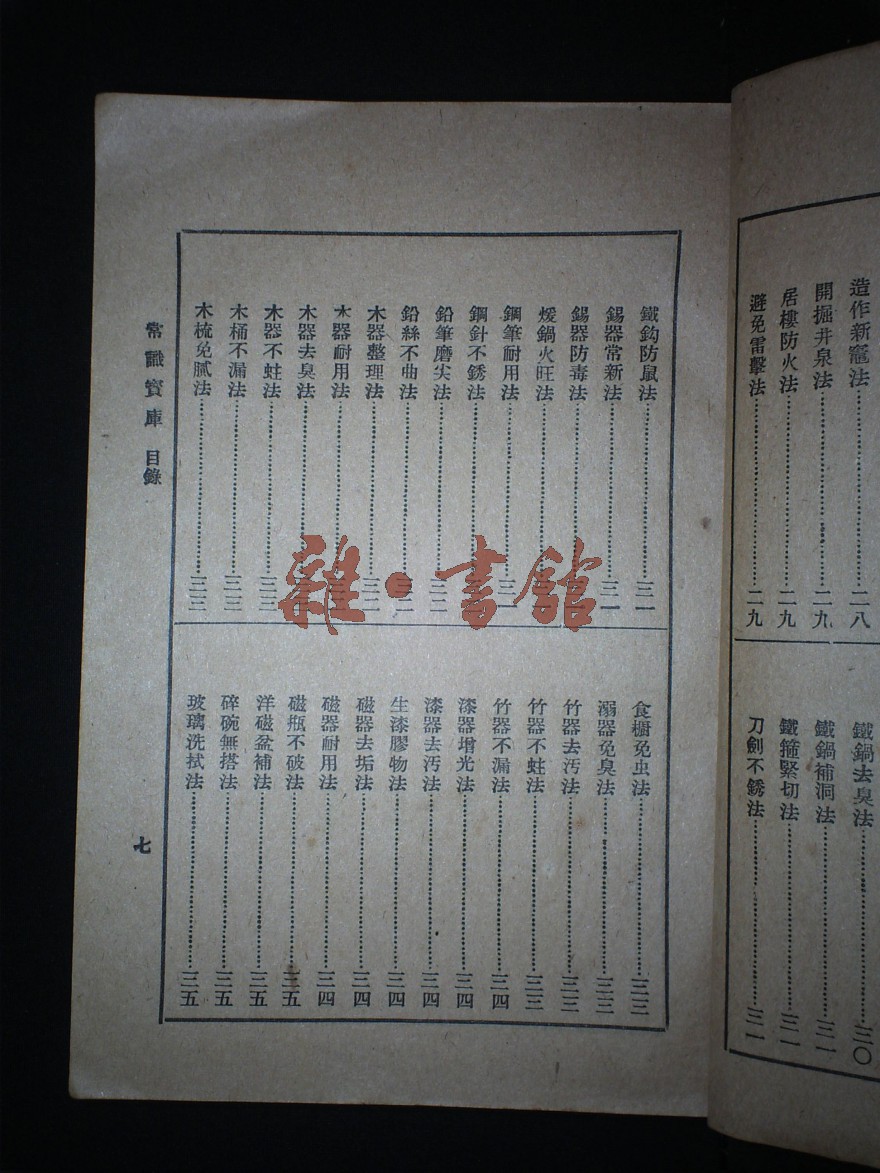 造作新竈法……二八
開掘井泉法……二九
居樓防火法……二九
避免雷擊法……二九
鐵鍋去臭法……三〇
鐵鍋補洞法……三一
鐵箍緊切法……三一
刀劍不銹法……三一
鐵鈎防鼠法……三一
錫器常新法……三一
錫器防毒法
煖鍋火旺法
鋼筆耐用法
鋼針不銹法
鉛筆磨尖法……三二
鉛絲不曲法
木器整理法
木器耐用法
木器去臭法
木器不蛀法
木桶不漏法……三三
木梳免膩法……三三
食櫥免虫法……三三
溺器免臭法……三三
竹器去汚法……三三
竹器不蛀法……三三
竹器不漏法……三四
漆器增光法……三四
漆器去汚法……三四
生漆膠物法……三四
磁器去垢法……三四
磁器耐用法……三四
磁瓶不破法……三五
洋磁盆補法……三五
碎碗無搭法……三五
玻璃洗拭法……三五
常識寶庫 目錄
七
雜·書館